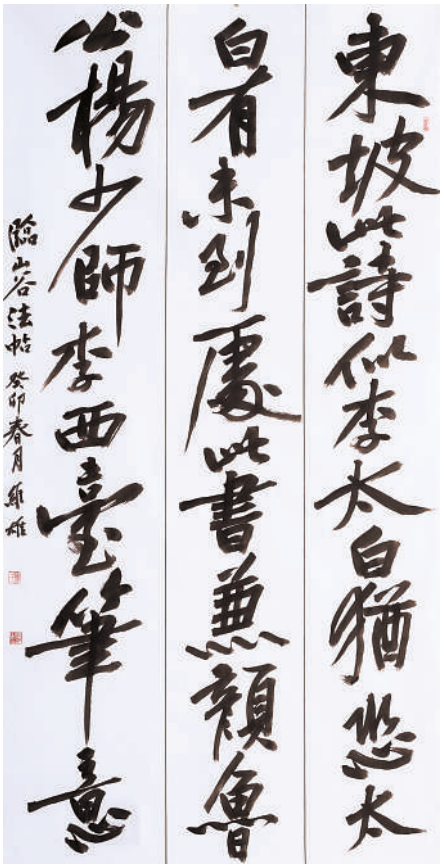 東坡此詩似李太白猶恐太
白有未到處此書兼顏魯
公楊少師李西臺筆意
臨山谷法帖 癸卯春月 維雄